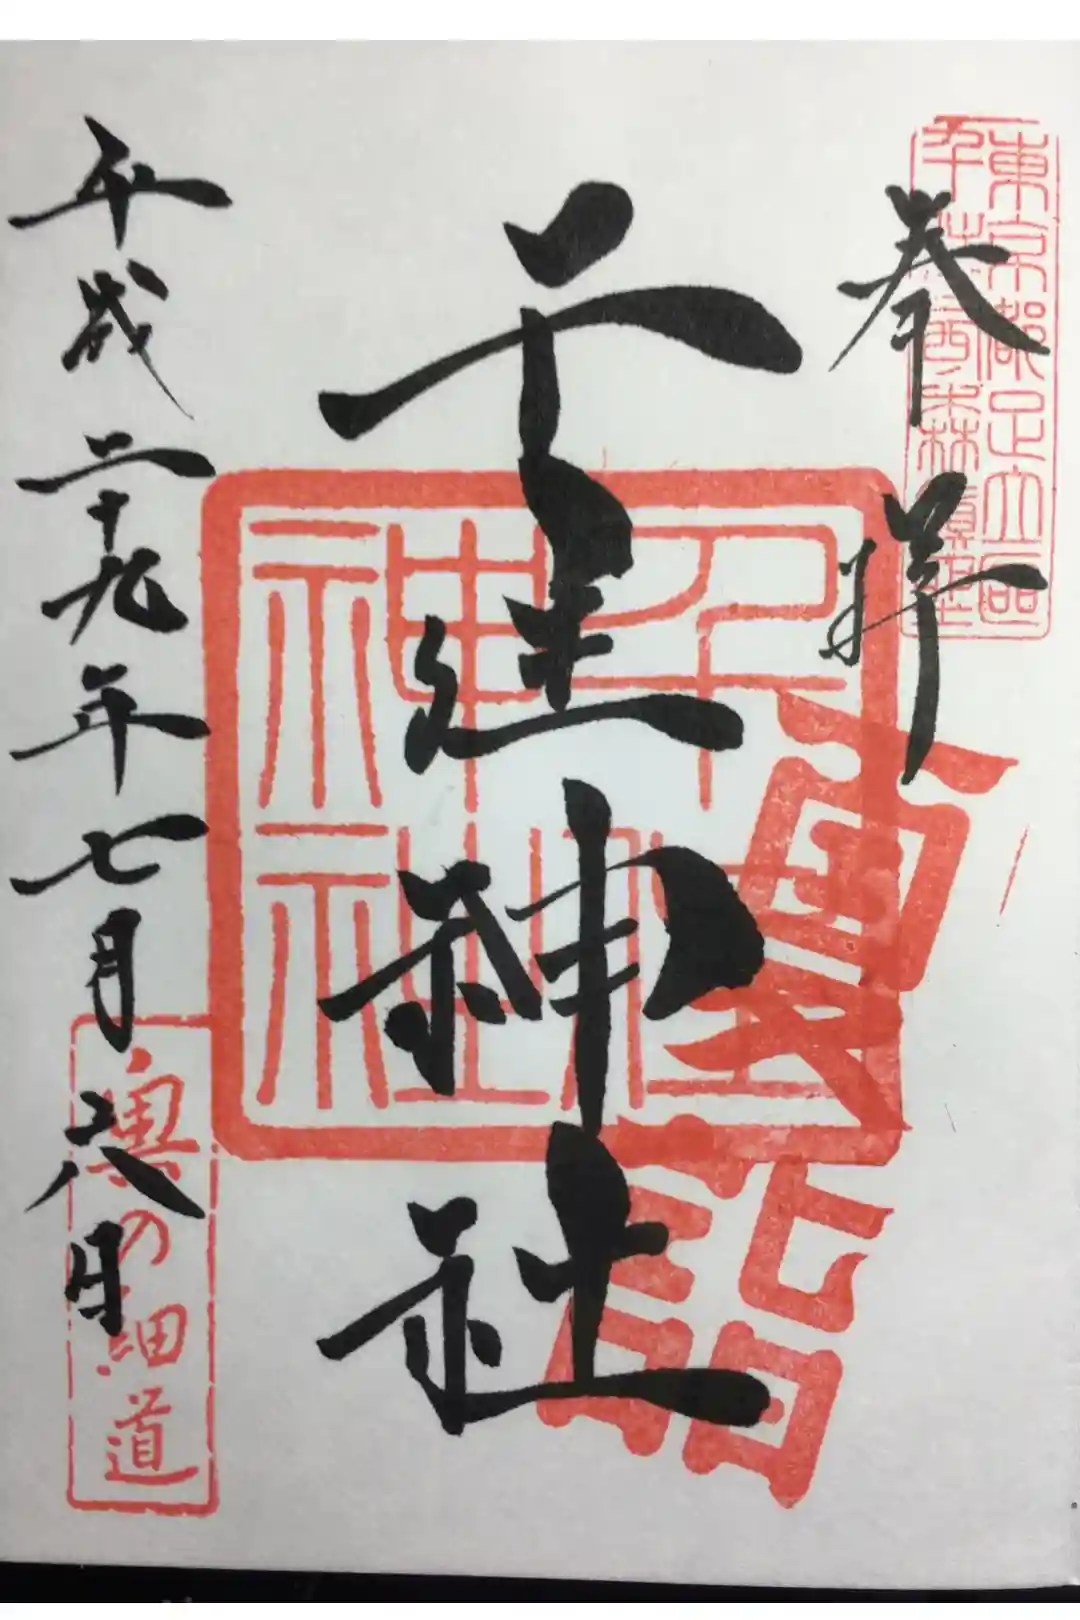 東京都足立区
千住西森鎮座
奉拝
夏詣
千住神社
千住
神社
平成二十九年七月六日
奥の細道